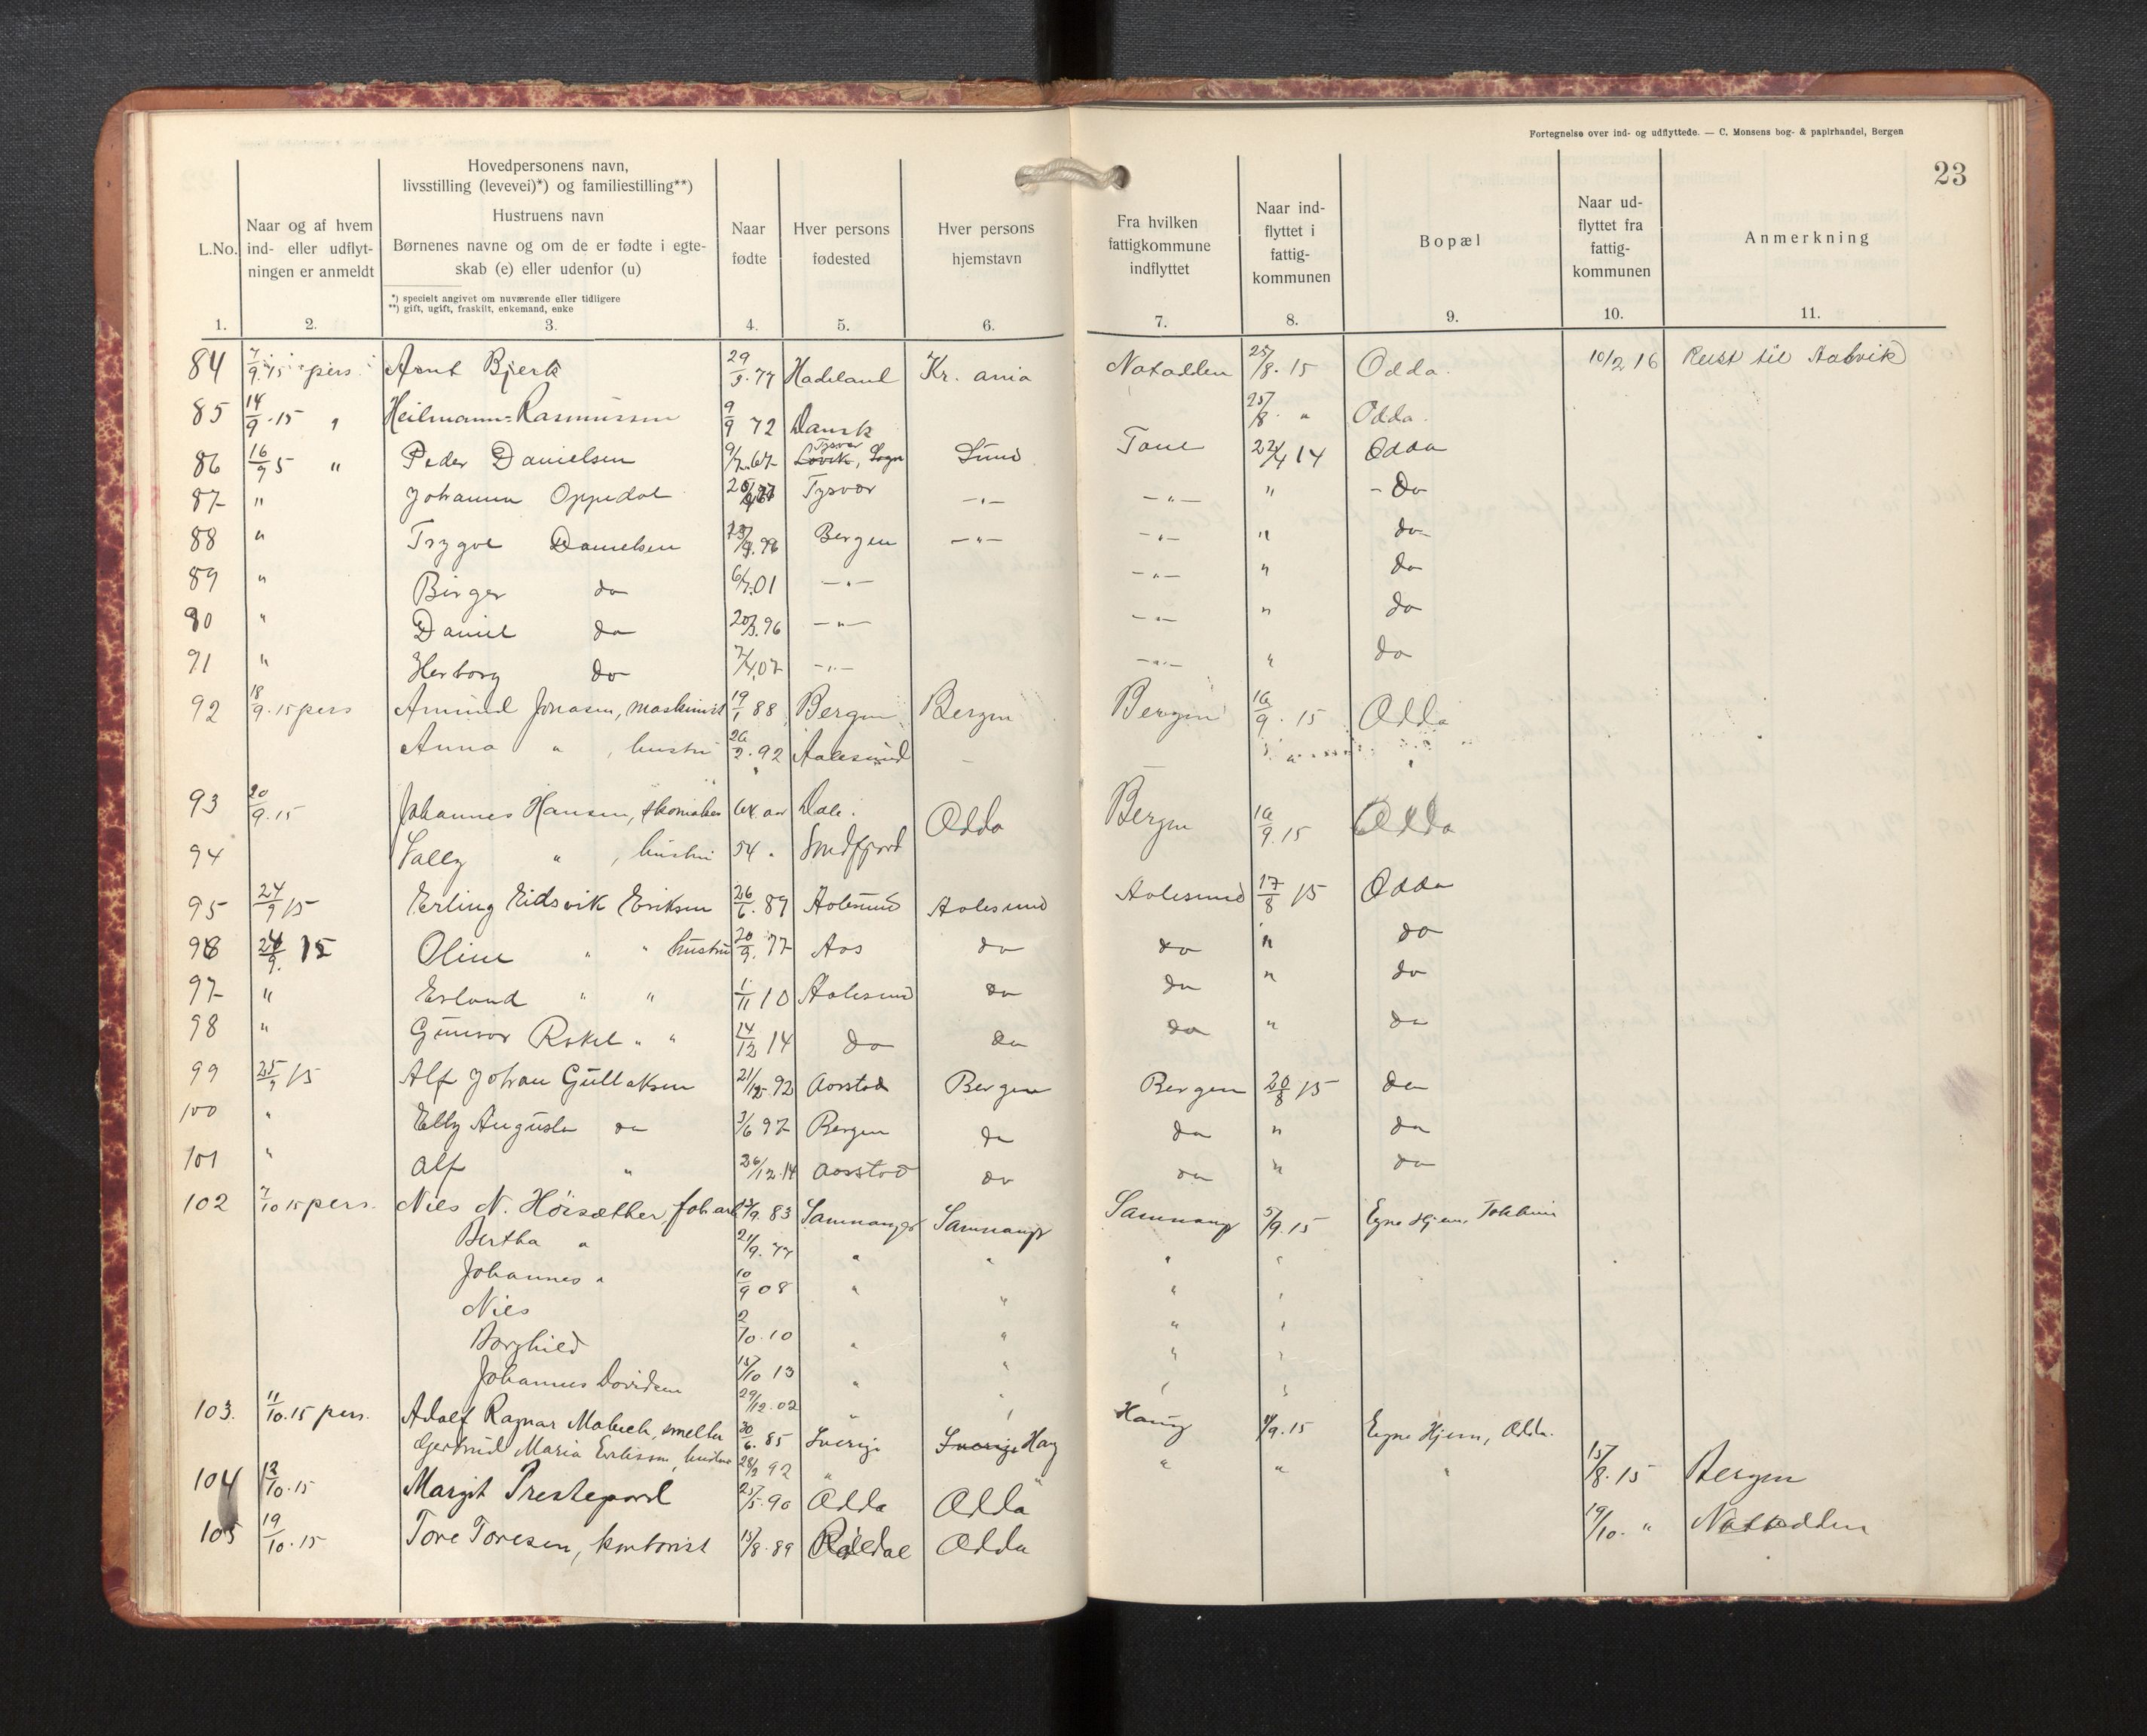 Fortegnelse over ind- og udflyttede. — C. Monsens bog- & papirhandel, Bergen
23
L.No.
Naar og af hvem ind- eller udflyt- ningen er anmeldt
Hovedpersonens navn,
livsstilling (levevei)*) og familiestilling**)
Hustruens navn
Børnenes navne og om de er fødte i egte-
skab (e) eller udenfor (u)
*) specielt angivet om nuværende eller tidligere
**) gift, ugift, fraskilt, enkemand, enke
Naar fødte
Hver persons fødested
Hver persons hjemstavn
Fra hvilken fattigkommune indflyttet
Naar ind- flyttet i fattig- kommunen
Bopæl
Naar ud- flyttet fra fattig- kommunen
Anmerkning
1. 2. 3. 4. 5. 6. 7. 8. 9. 10. 11.
84 7/9.15 pers. Arnt Bjerk 29/3.77 Hadeland Kr. ania Notodden 25/8.15 Odda. 10/2 16 Reist til
85 14/9.15 " Heilmann-Rasmussen 9/9 72 Dansk 25/8. " Odda.
86 16/9 5 " Peder Danielsen 9/7.67 Tysvær Sund 22/4 14 Odda
87 " Johanna Oppedal Tysvær —"— —"— " - do
88 " Trygve Danielsen Bergen —"— —"— " do
89 " Birger do 6/7.01 —"— —"— " do
90 " Daniel do 20/3.96 —"— —"— " do
91 " Herborg do 7/4.07 —"— —"— " do
92 18/9.15 pers Amund Jonasen, maskinist 19/1 88 Bergen Bergen Bergen 16/9.15 Odda
Anna " , hustru 26/2.92 Aalesund
93 20/9.15 Johannes Hansen, skomaker 64 aar Dale. Odda Bergen 16/9.15 Odda
94 Sally " , hustru 54 " Sundfjord
95 24/9 15 Erling Eidsvik Eriksen 26/6.89 Aalesund Aalesund Aalesund 17/8 15 Odda
96 24/9. 15 Oline " " hustru 20/9.77 Aas do do " do
97 " Erland " " 1/11 10 Aalesund do do " do
98 " Gunvor Rakel " " 14/12 14 do do do " do
99 25/9 15 Alf Johan Gullaksen 21/12.92 Aarstad Bergen Bergen 20/8 15 do
100 " Elly Augusta do 3/6 97 Bergen do do " do
101 " Alf " 26/12.14 Aarstad do do " do
102 7/10 15 pers. Niels N. Høisæther, 83 Samnanger Samnanger Samnanger 5/9.15 Egne Hjem,
Bertha " 21/9.77 " " " "
Johannes " 10/9 08 " " " "
Niels 2/10.10 " " "
Borghild 15/10 13 " " " "
Johannes Davidsen 29/12.02 " " " "
103. 11/10.15 pers. Adolf Ragnar smelter 30/6.85 Sverige Sverige Haug Haug 9.15 Egne Hjem, Odda.
Gertrud Maria hustru 92 " " " " "
104 12/10.15 Margit Prestegard 25/5.90 Odda Odda 15/8.15 Bergen
105 19/10.15 Tore Toresen, kontorist 15/8.89 Røldal Odda 19/10. " Notodden